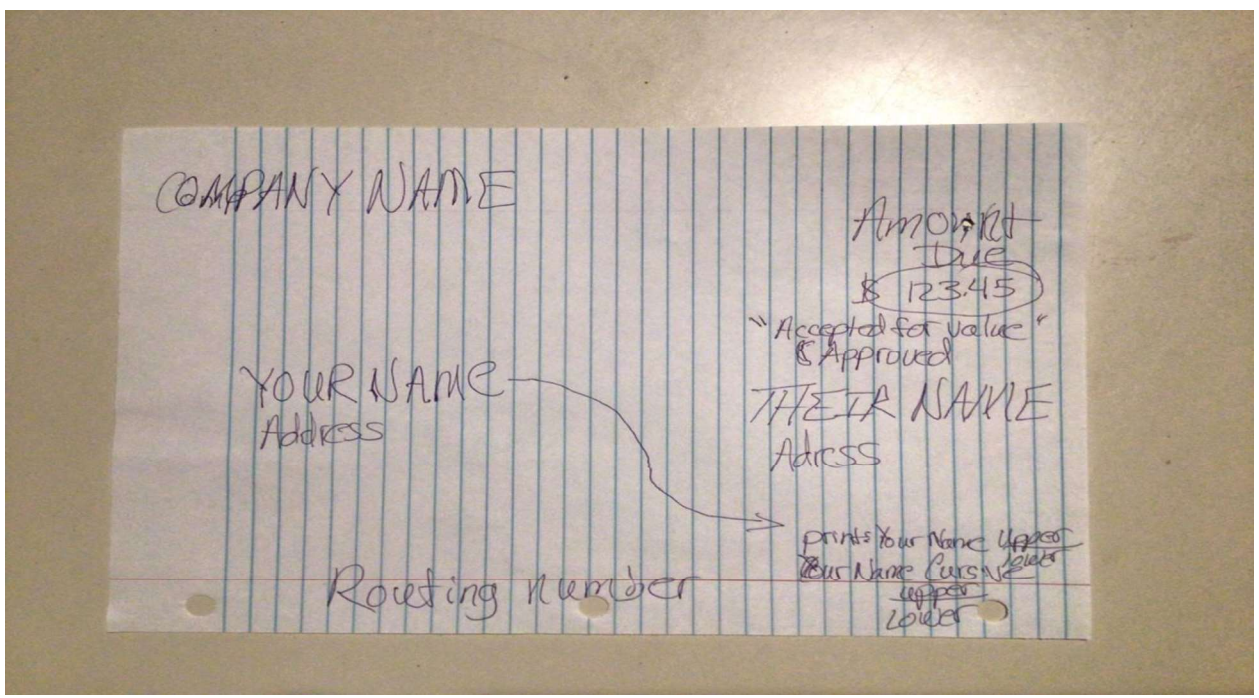 COMPANY NAME
Amount
Due
$ 123.45
"Accepted for value"
& Approved
YOUR NAME
Address
THEIR NAME
Adress
prints Your Name Upper
lower
Your Name Cursive
upper
Lower
Routing number